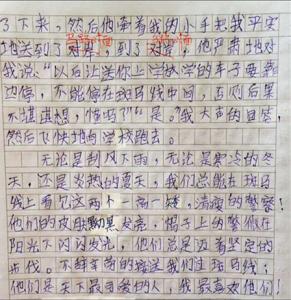 了下来，然后他牵着我的小手把我平安
马路对面
地送到了对岸，到了对岸，他严肃地对
我说："以后让送你上学放学的车子要靠
边停，不能停在斑马线中间，否则后果
不堪设想，懂吗？""是。"我大声的回答，
然后飞快地向学校跑去。
无论是刮风下雨，无论是寒冷的冬
天，还是炎热的夏天，我们总能在斑马
线上看见这两个高 的警察！
他们的皮肤黝黑发亮，帽子上的警徽在
阳光下闪闪发光，他们总是迈着坚定的
步伐。不辞辛苦的接送我们过斑马线，
他们是天下最可爱的人，我最喜欢他们！